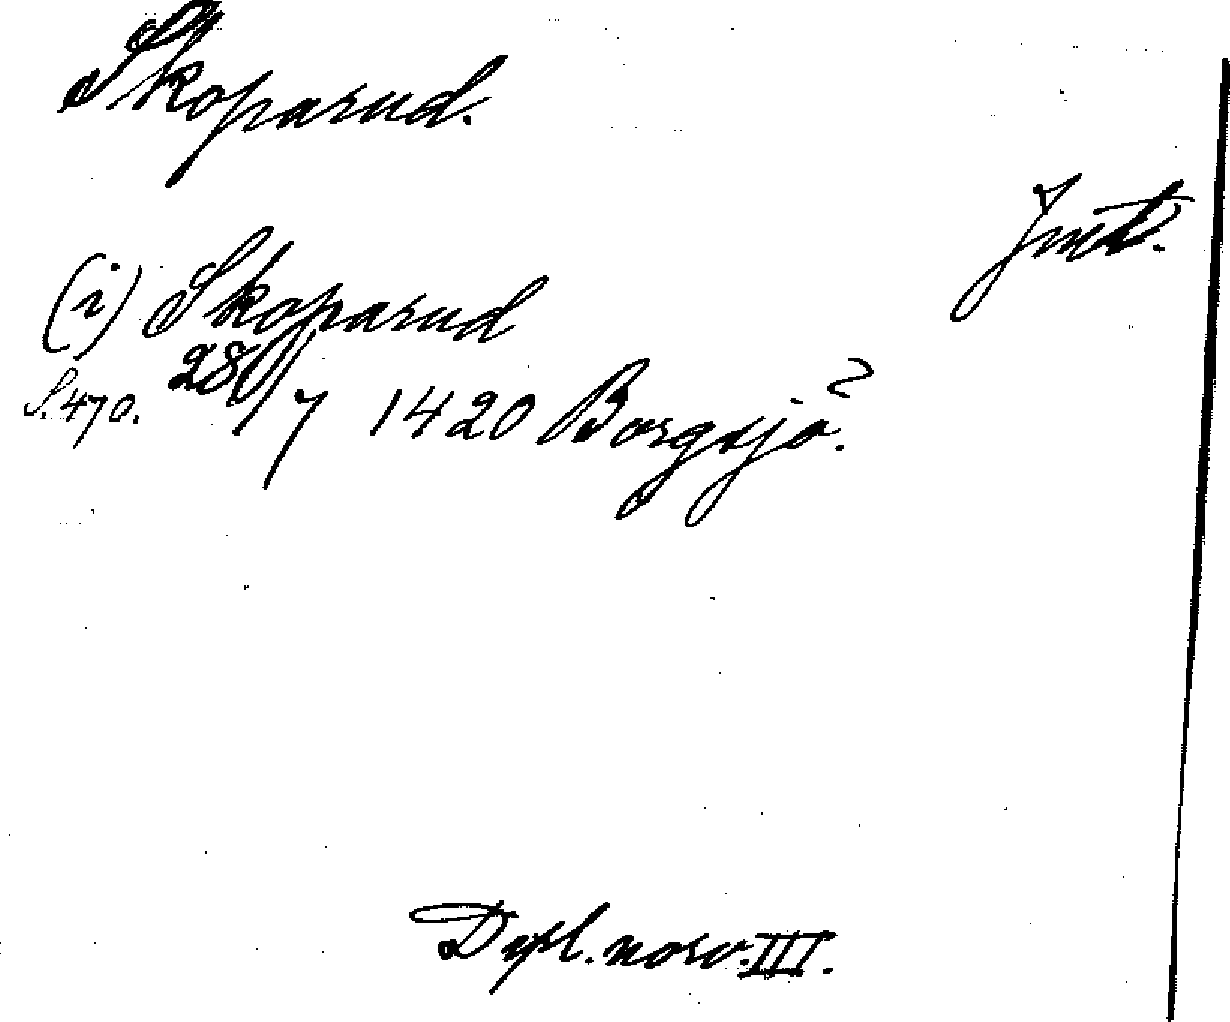 Skoparud.
Jmt.
(i) Skoparud
S. 470. 28/7 1420 Borgsjö.
Dipl. norv. III.